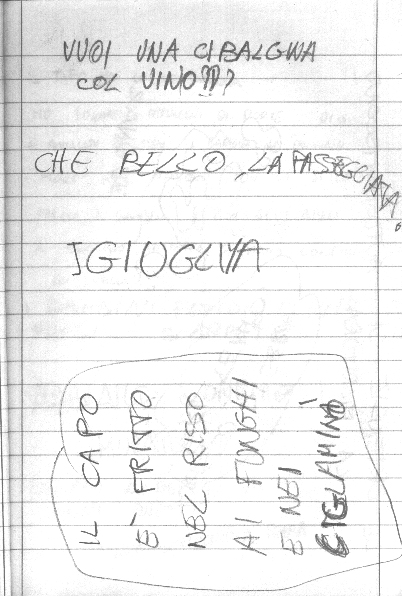 VUOI UNA CIBALGINA
COL VINO???
CHE BELLO, LA PASSEGGIATA.
IL CAPO
È FRITTO
NEL RISO
AI FUNGHI
E NEI